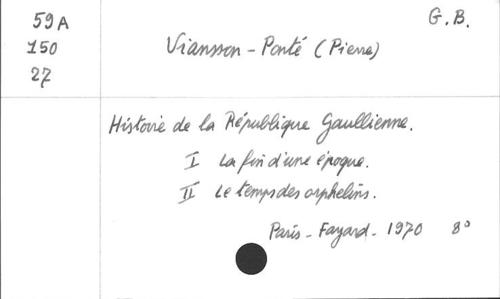 59A
150
27
G.B.
Viansson-Ponté (Pierre)
Histoire de la République Gaullienne.
I La fin d'une époque.
II Le temps des orphelins.
Paris - Fayard - 1970 8°